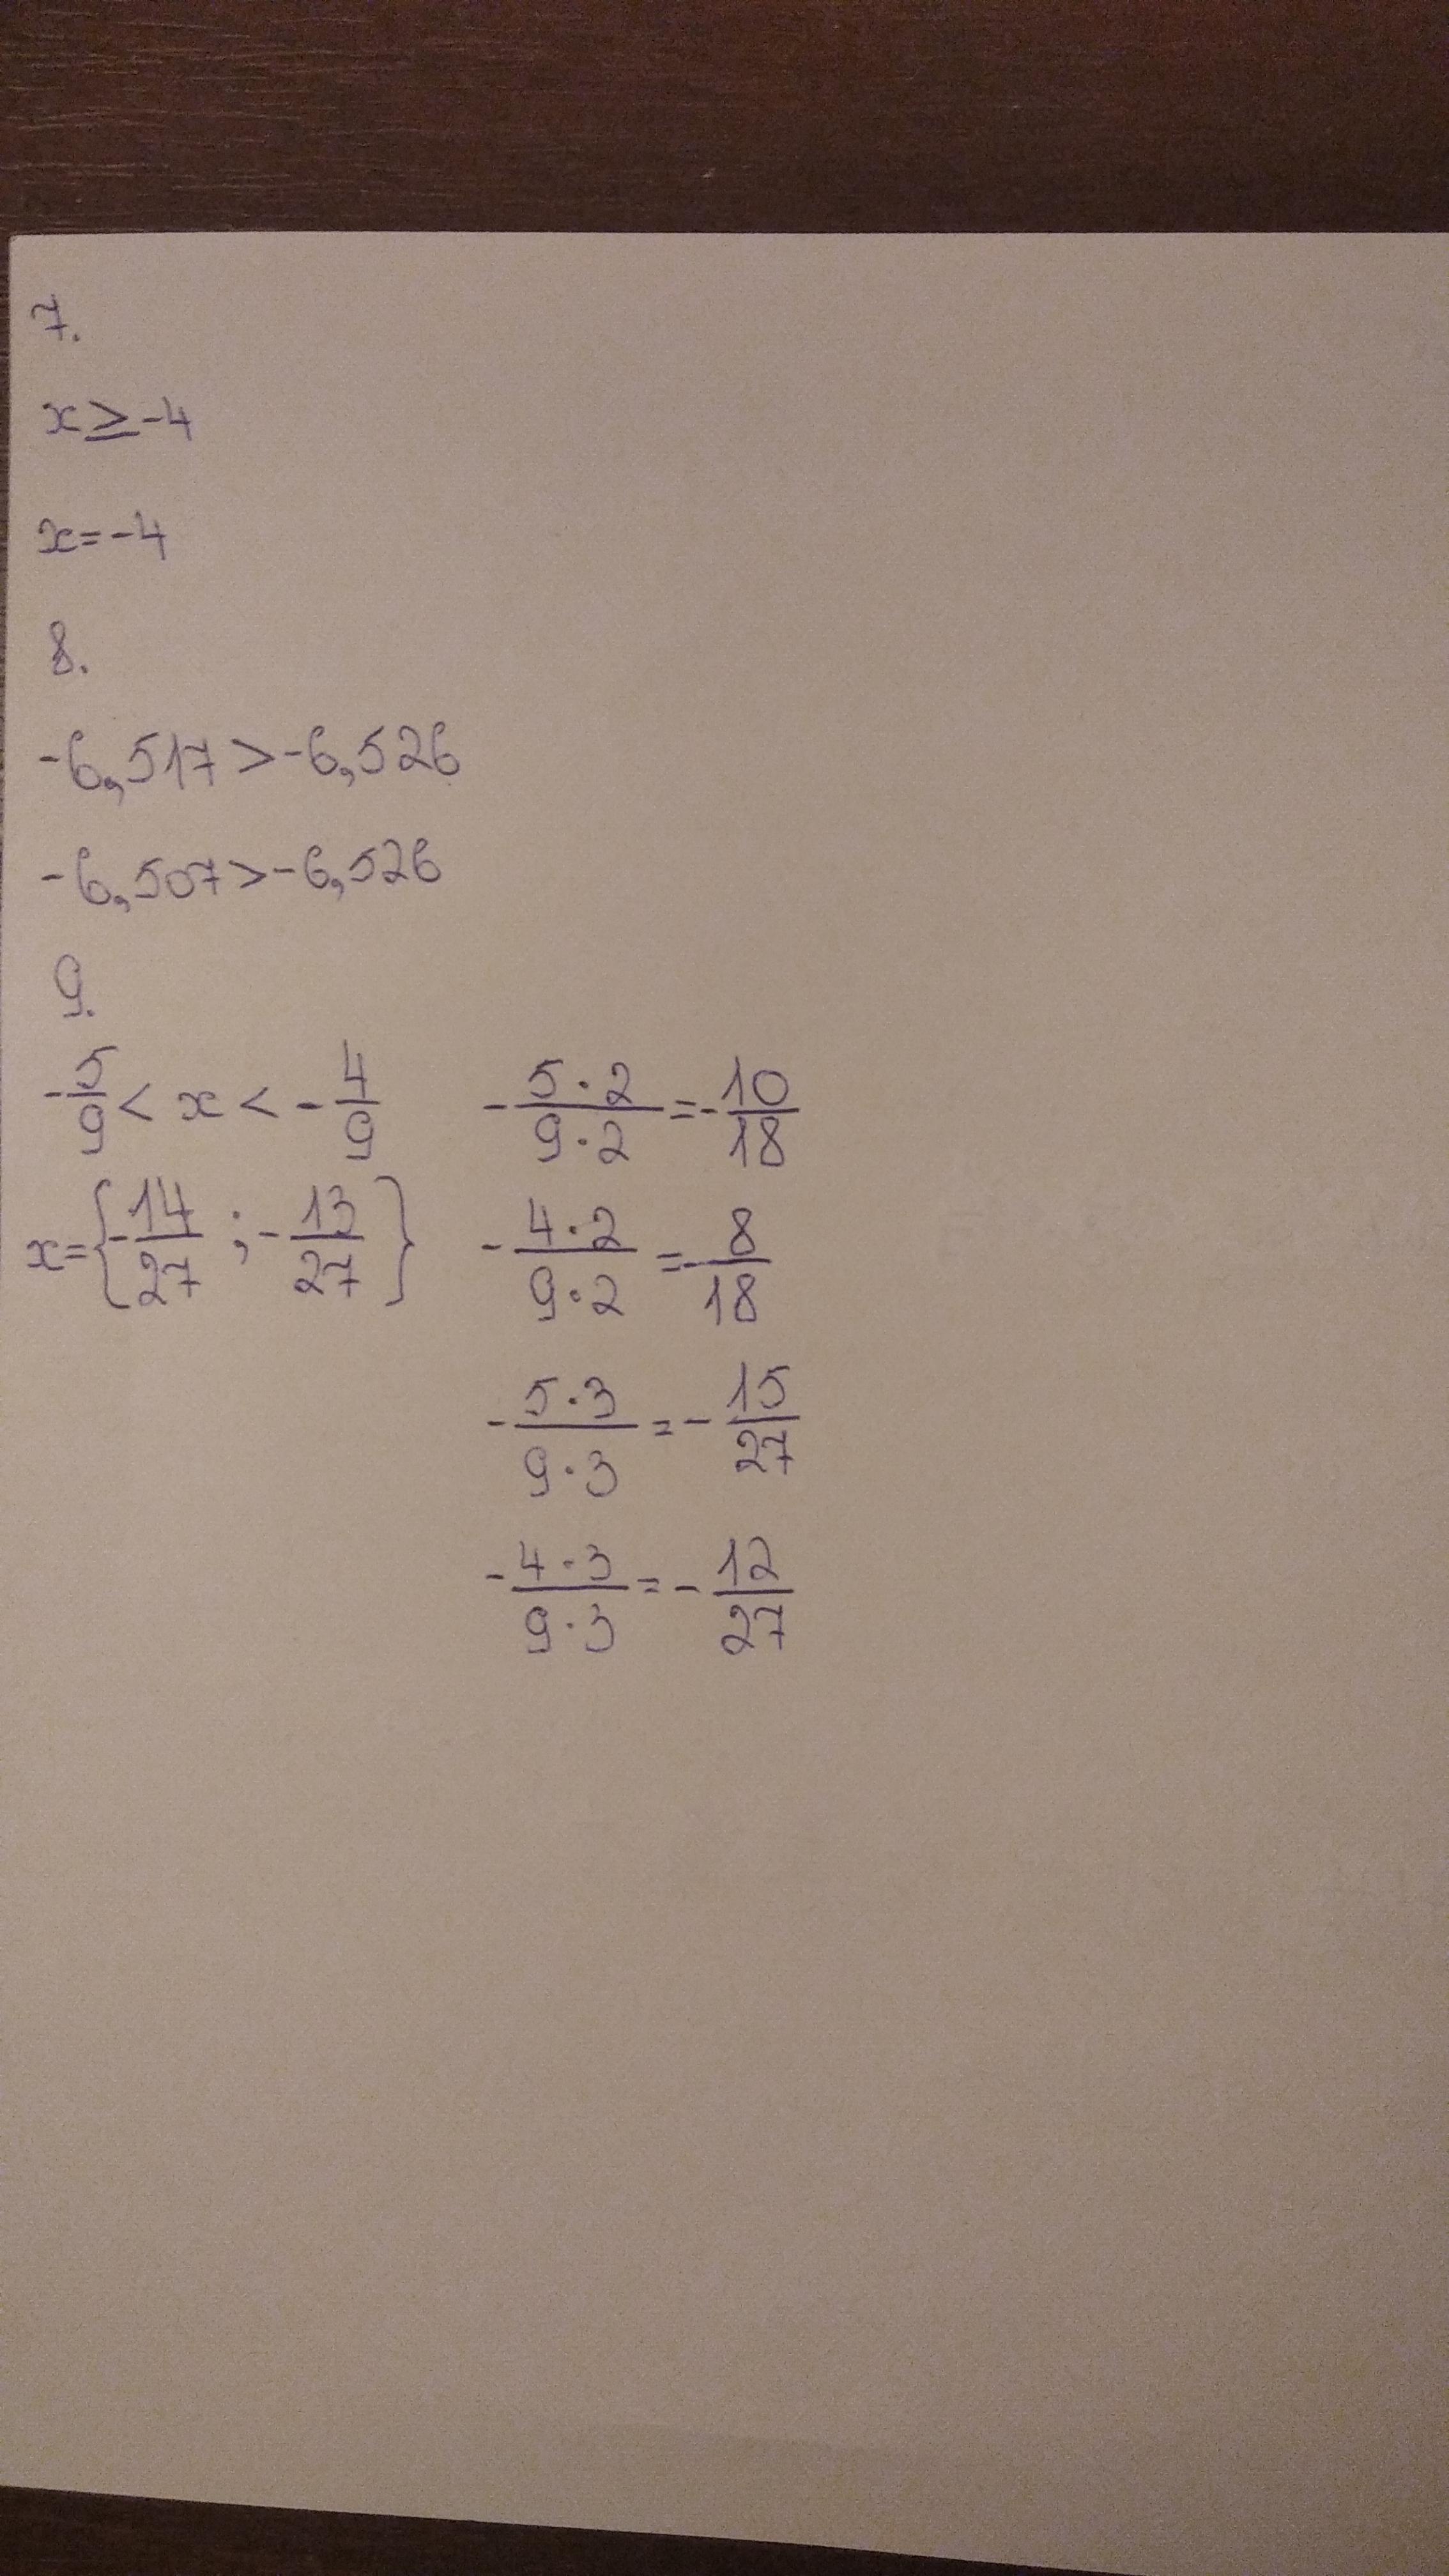 7.
x ≥ -4
x = -4
8.
-6,517 > -6,526
-6,507 > -6,526
9.
-5/9 < x < -4/9
x = {-14/27 ; -13/27}
-5·2/9·2 = -10/18
-4·2/9·2 = -8/18
-5·3/9·3 = -15/27
-4·3/9·3 = -12/27